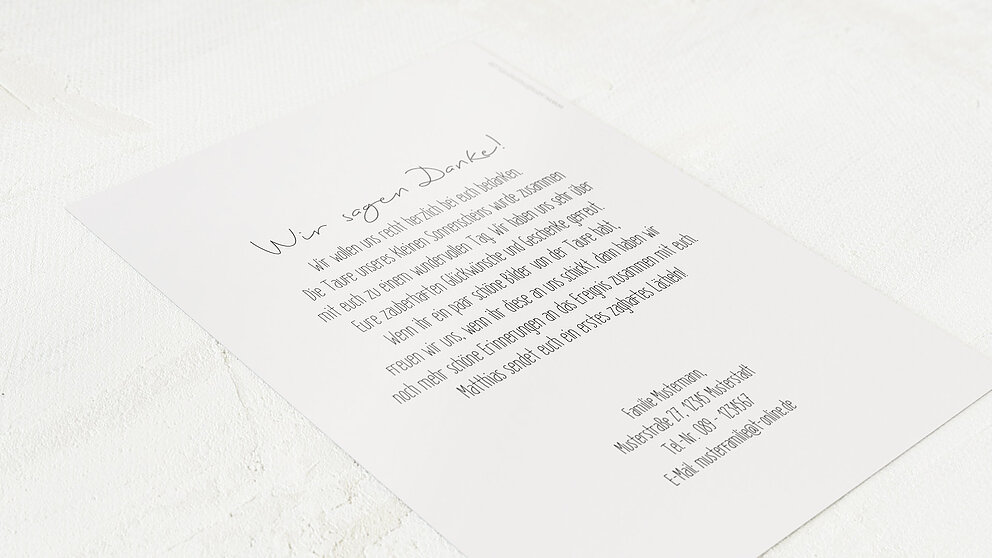 Wir sagen Danke!
Wir wollen uns recht herzlich bei euch bedanken.
Die Taufe unseres kleinen Sonnenscheins wurde zusammen
mit euch zu einem wundervollen Tag. Wir haben uns sehr über
Eure zauberhaften Glückwünsche und Geschenke gefreut.
Wenn ihr ein paar schöne Bilder von der Taufe habt,
freuen wir uns, wenn ihr diese an uns schickt, dann haben wir
noch mehr schöne Erinnerungen an das Ereignis zusammen mit euch.
Matthias sendet euch ein erstes zaghaftes Lächeln!
Familie Mustermann,
Musterstraße 27, 12345 Musterstadt
Tel.-Nr. 089 - 1234567
E-Mail: musterfamilie@t-online.de